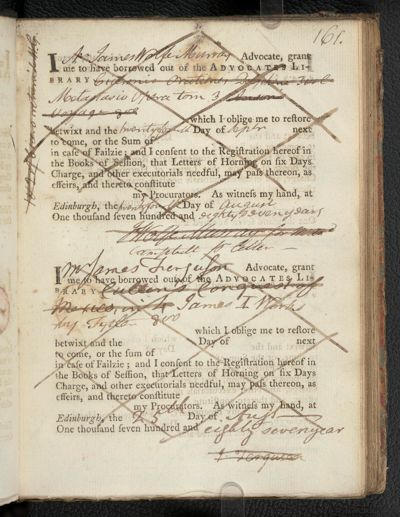 161.
I Mr James Wolfe Murray Advocate, grant
me to have borrowed out of the ADVOCATES LI-
BRARY
Metastasio Opera tom 3
Voyage
which I oblige me to restore
betwixt and the Day of next
to come, or the Sum of
in case of Failzie; and I consent to the Registration hereof in
the Books of Session, that Letters of Horning on six Days
Charge, and other executorials needful, may pass thereon, as
effeirs, and thereto constitute
my Procurators. As witness my hand, at
Edinburgh, the Day of August
One thousand seven hundred and eighty seven years
J Wolfe Murray
Campbell
I Mr James Ferguson Advocate, grant
me to have borrowed out of the ADVOCATES LI-
BRARY Cullen's Conquest of
Mexico James I Works
by Tytler 800
which I oblige me to restore
betwixt and the Day of next
to come, or the sum of
in case of Failzie; and I consent to the Registration hereof in
the Books of Session, that Letters of Horning on six Days
Charge, and other executorials needful, may pass thereon, as
effeirs, and thereto constitute
my Procurators. As witness my hand, at
Edinburgh, the 25 Day of August
One thousand seven hundred and eighty seven year
J Ferguson